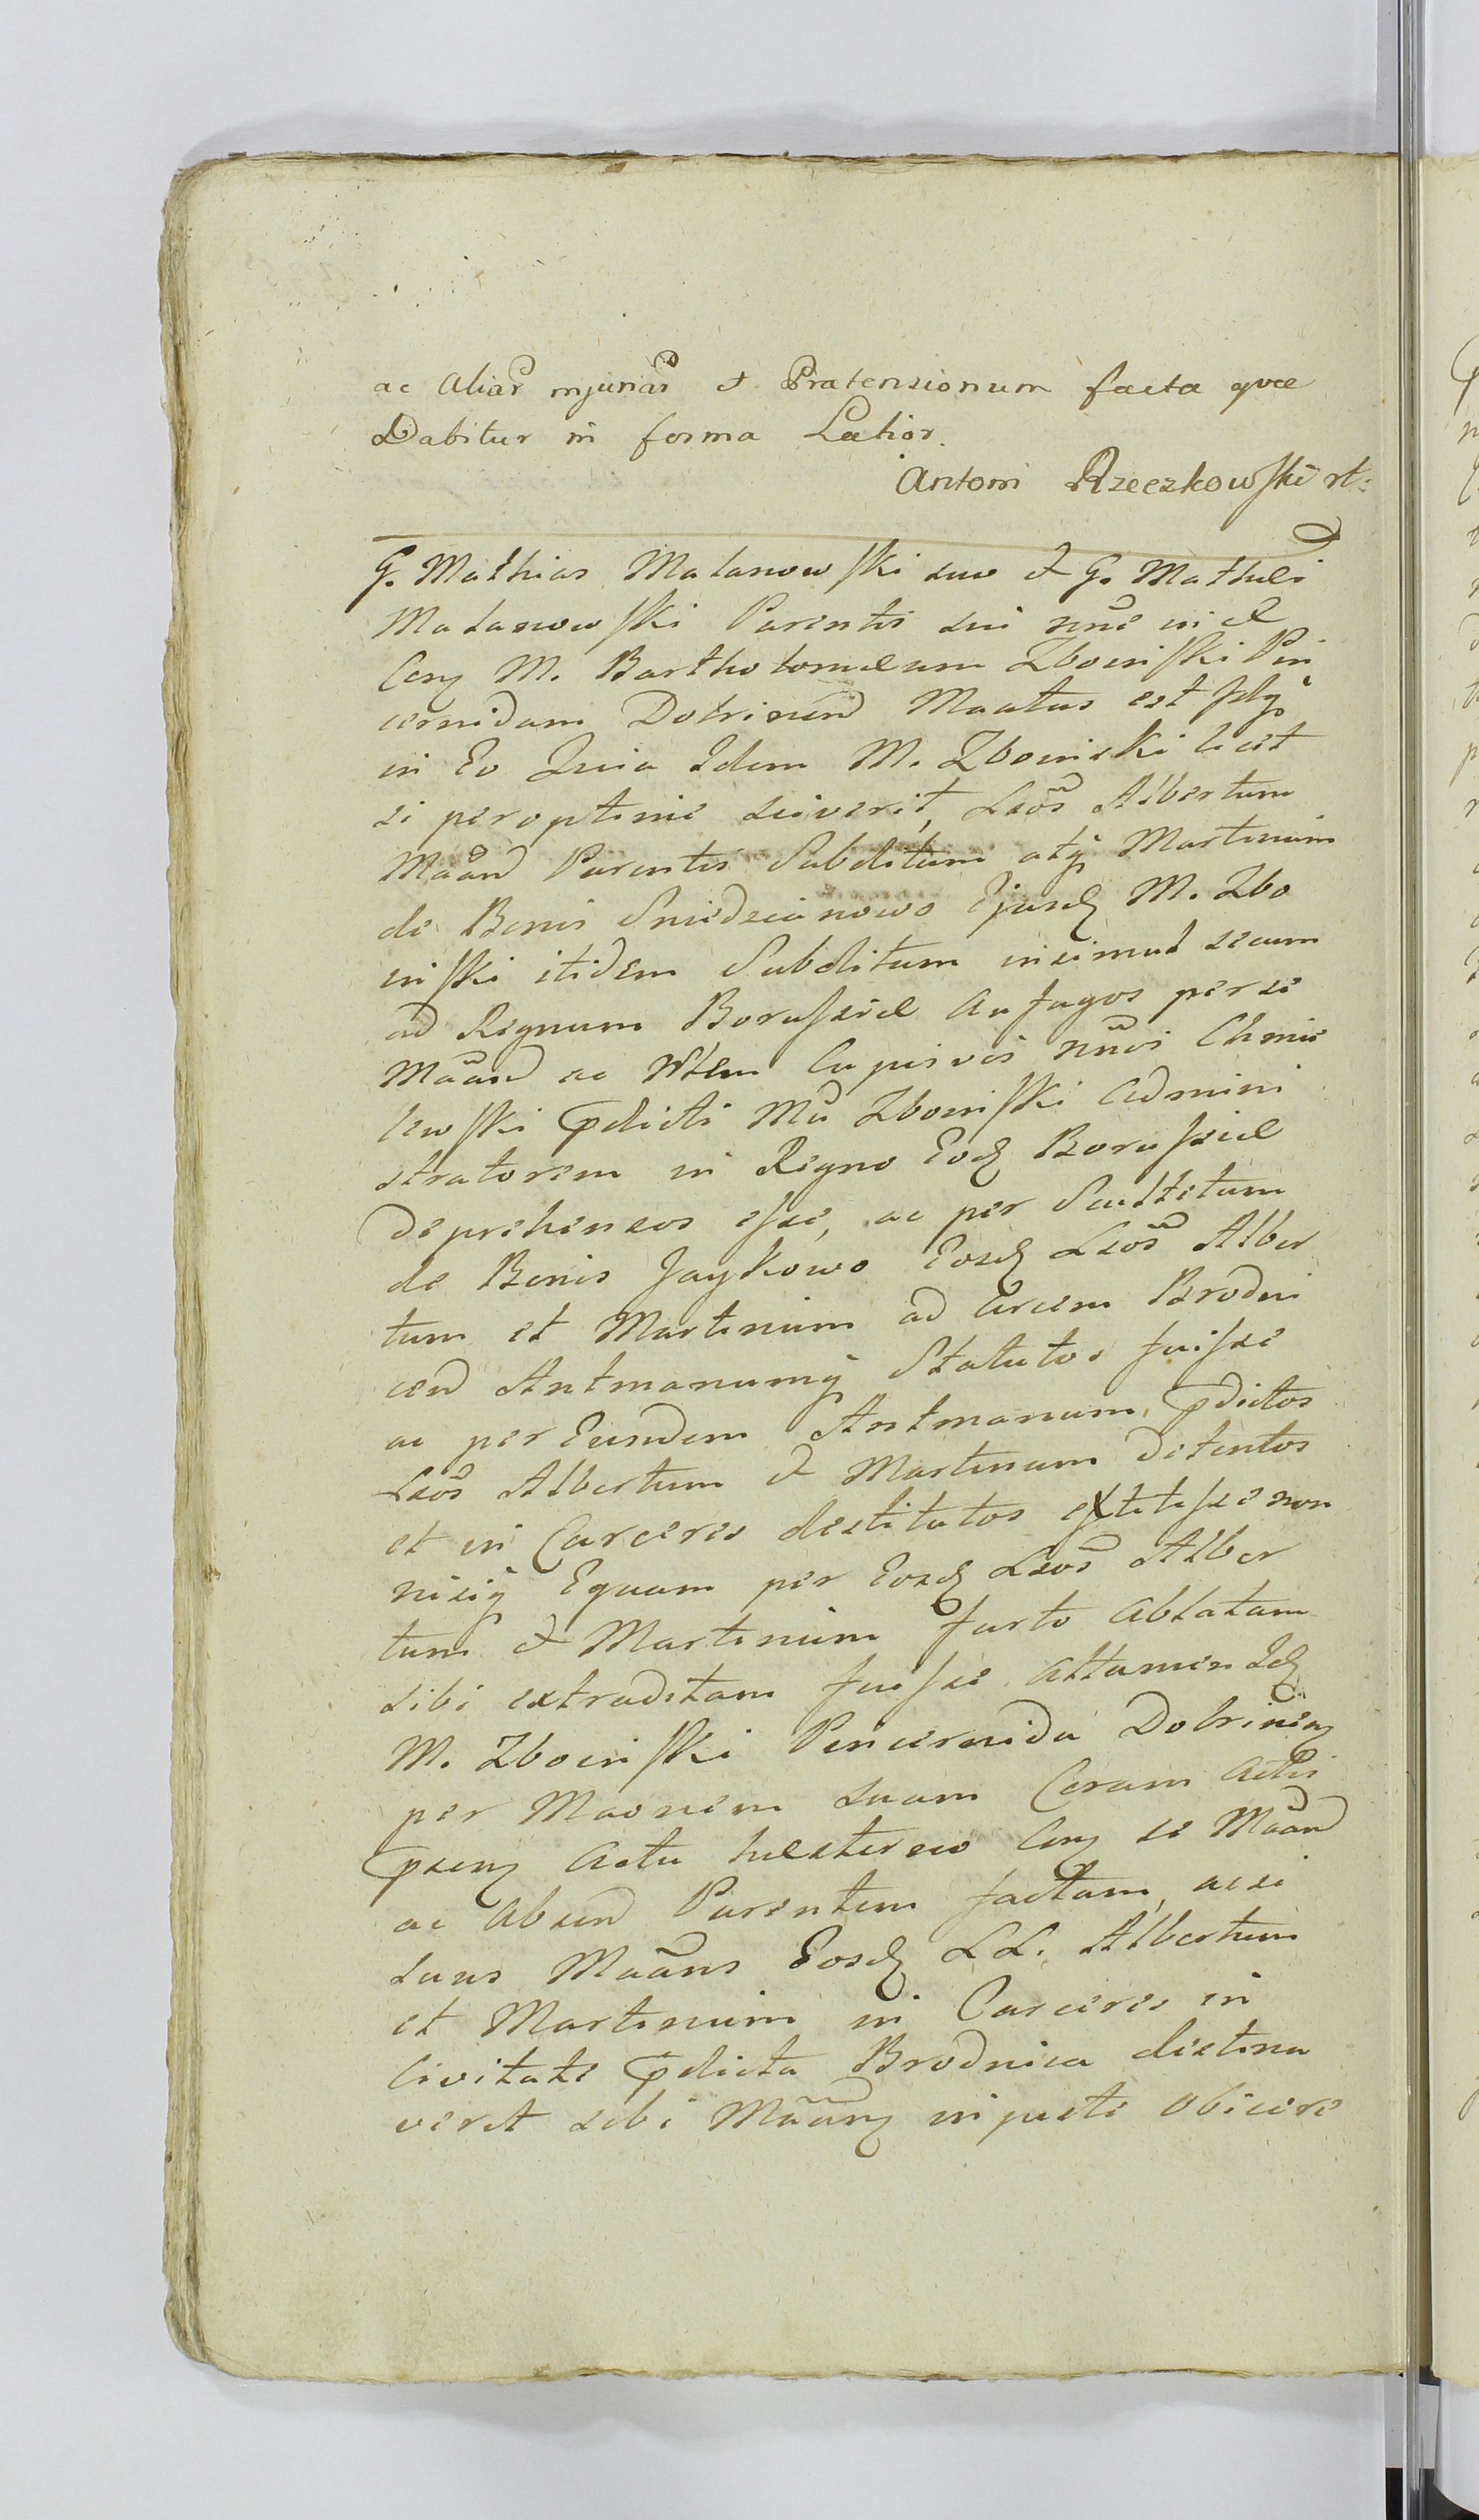 ac Aliar injuriar et Prætensionum facta quæ
Dabitur in forma Latior.
Antoni Rzeczkowski rt:
G. Mathias Malanowski suo et G. Mathæi
Malanowski Parentis sui nne in et
Cerq M. Bartholomæum Zboinski Pin
cernidam Dobrinen Maatus est
in Eo Quia Idem M. Zboinski licet
si peroptime sciverit, Lsos Albertum
Maan Parentis Subditum atq Martinum
de Bonis Sniedzianowo Ejusd M. Zbo
inski itidem Subditum insimul secum
ad Regnum Borussiæ Aufugos per se
Maan ac Nblem nnoi Chmie
lewski pdicti Mci Zboinski Admini
stratorem in Regno Eod Borussiæ
Deprehensos esse, ac per Scultetum
de Bonis Jaykowo Eosd Lsos Alber
tum et Martinum ad Arcem Brodni
cen Antmanumq Statutos fuisse
ac per Eundem Antmanum, pdictos
Lsos Albertum et Martinum Detentos
et in Carceres destitutos extitisse non
nisiq Equam per Eosd Lsos Alber
tum et Martinum furto Ablatam
sibi extraditam fuisse attamen Id
M. Zboinski Pincernida Dobrinen
per Maonem suam Coram Actis
psen Actu hesterno Con se Maan
ac Absen Parentem factam, acsi
suus Maans Eosd LL. Albertum
et Martinum in Carceres in
Civitate pdicta Brodnica distinu
verit sibi Maan injuste obicere